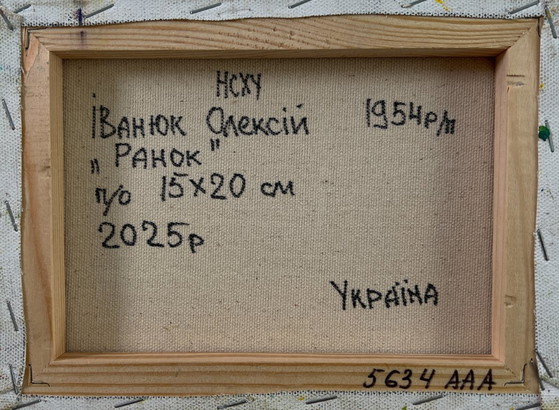 НСХУ
Іванюк Олексій 1954р/н
„Ранок"
п/о 15х20 см
2025р
Україна
5634 ААА